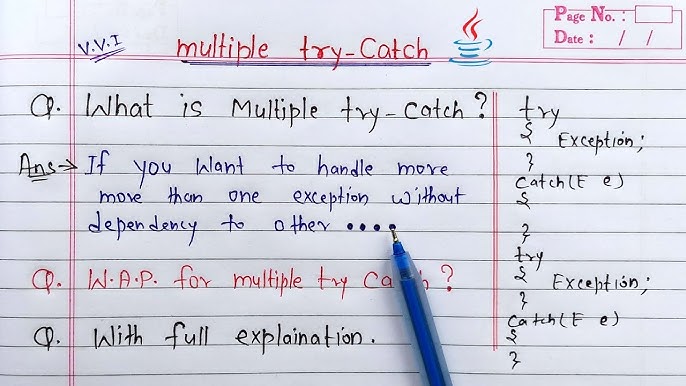 Page No. :
Date : / /
V.V.I
multiple try-Catch
Q. What is Multiple try-catch?
Ans→ If you want to handle more
more than one exception without
dependency to other ••••
Q. W.A.P. for multiple try Catch?
Q. With full explaination.
try
{ Exception;
}
catch(E e)
{
}
try
{ Exception;
}
catch(E e)
{
}